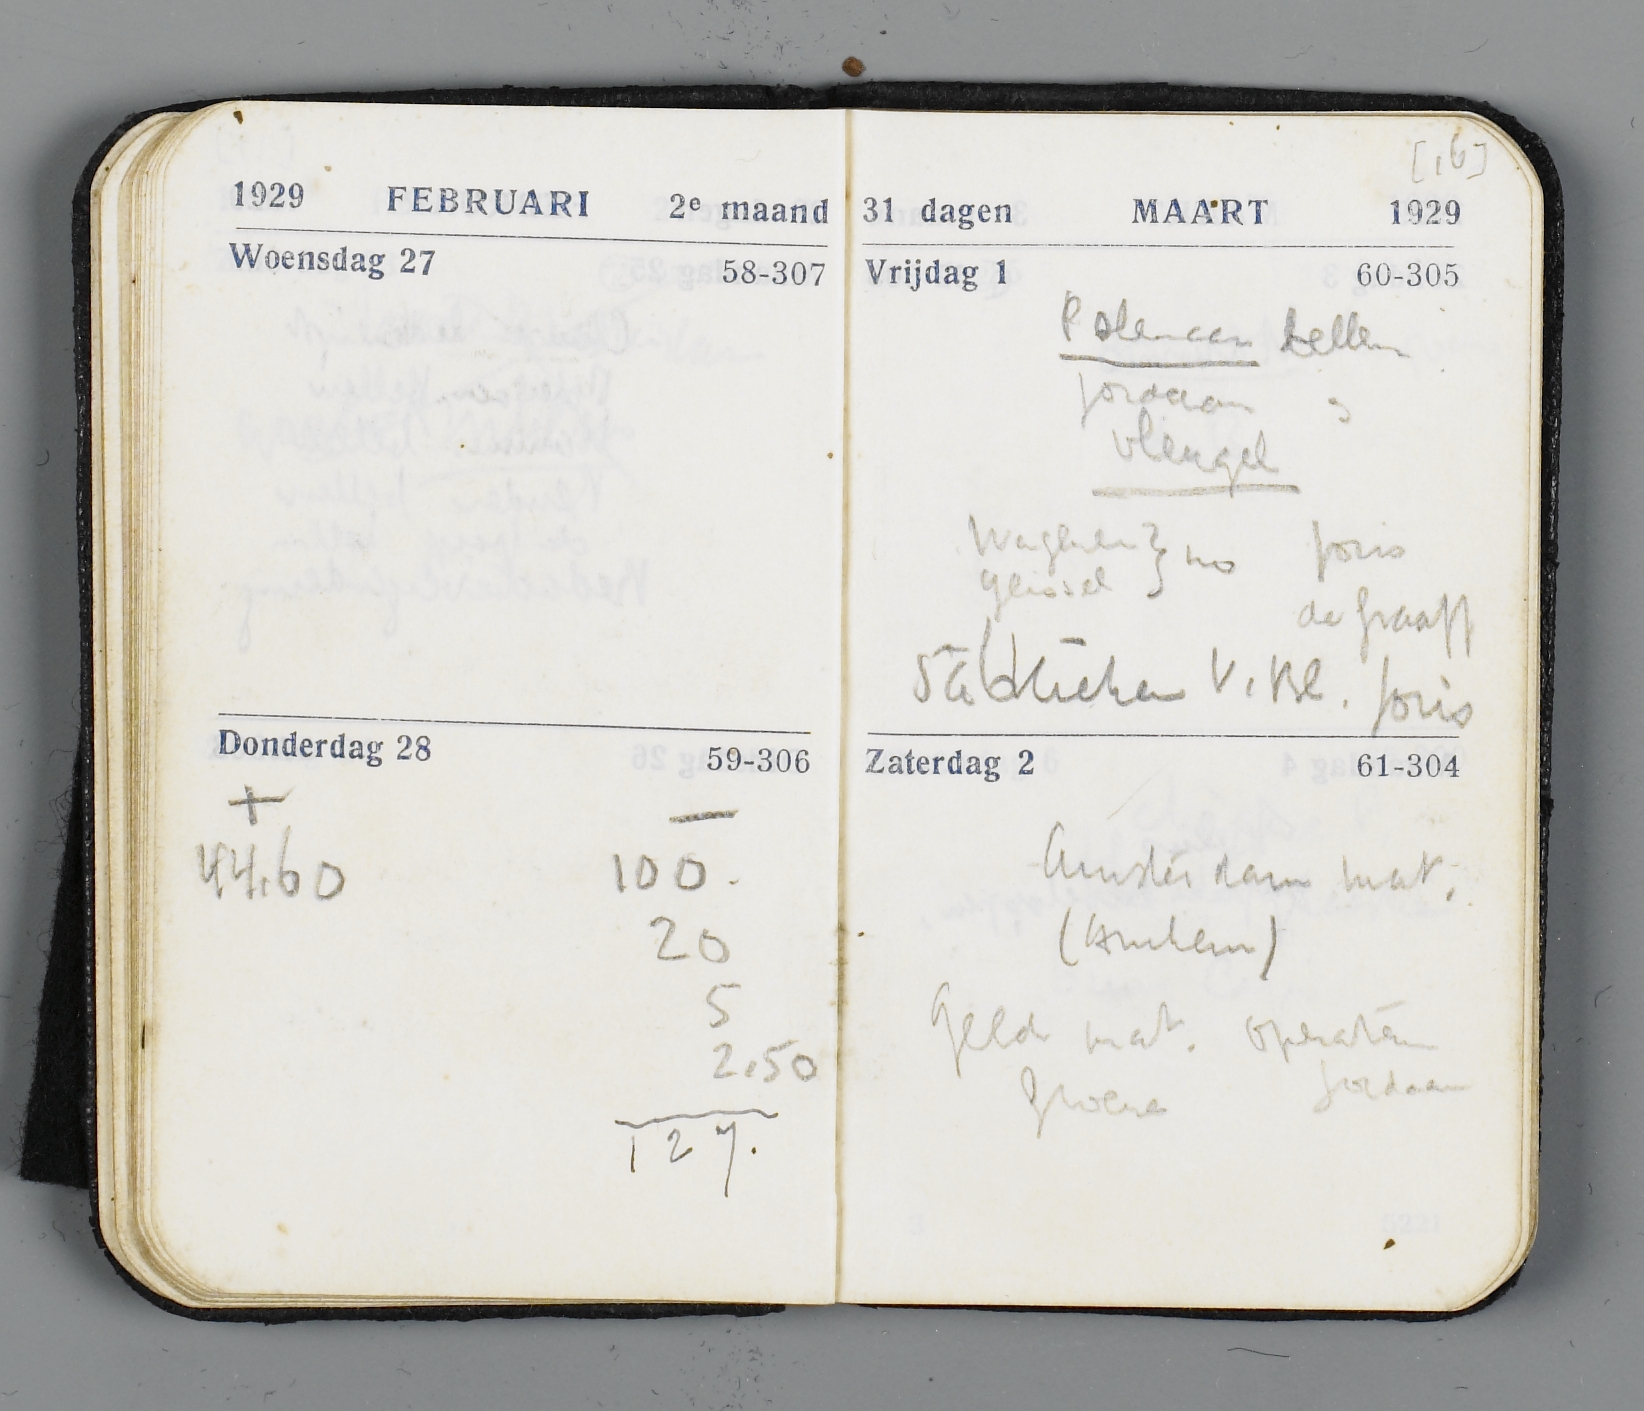 1929 FEBRUARI 2e maand
Woensdag 27 58-307
Donderdag 28 59-306
+ —
44.60 100.
20
5
2.50
127.
[16]
31 dagen MAART 1929
Vrijdag 1 60-305
bellen
Jordaan "
Vleugel
Joris
de Graaff
V. Bl. Joris
Zaterdag 2 61-304
Amsterdam mat.
(Arnhem)
Geld mat. operateur
Jordaan